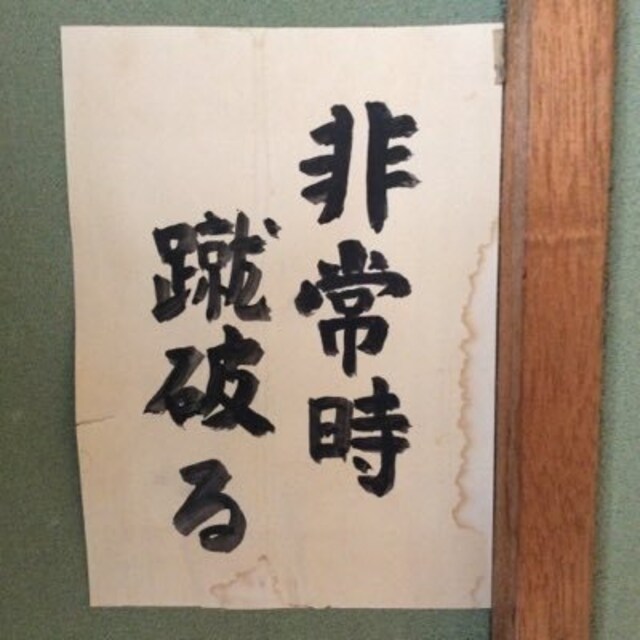 非常時
蹴破る